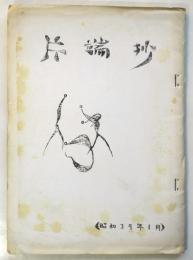 片端抄
《昭和39年1月》